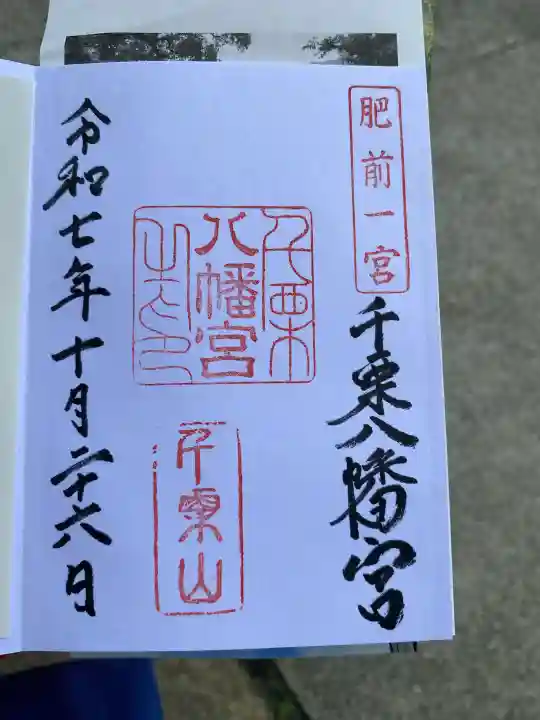 肥前一宮
千栗八幡宮
千栗
八幡宮
之印
千栗山
令和七年十月二十六日